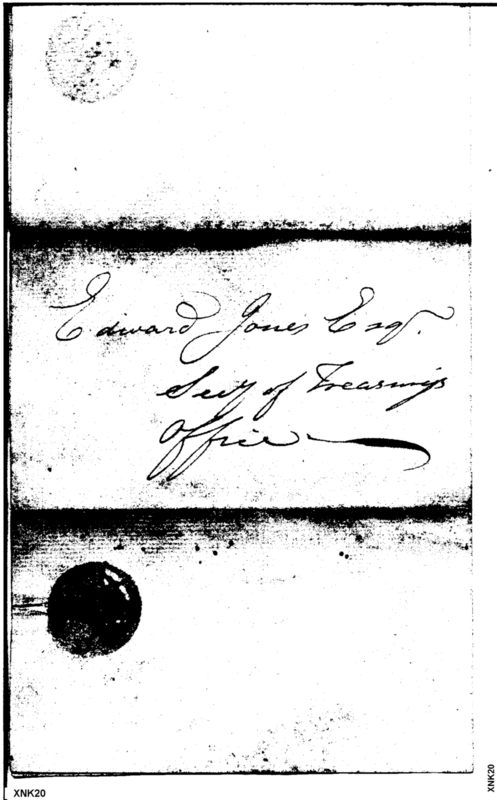 Edward Jones Esqr.
Secy of Treasury's
Office
XNK20
XNK20